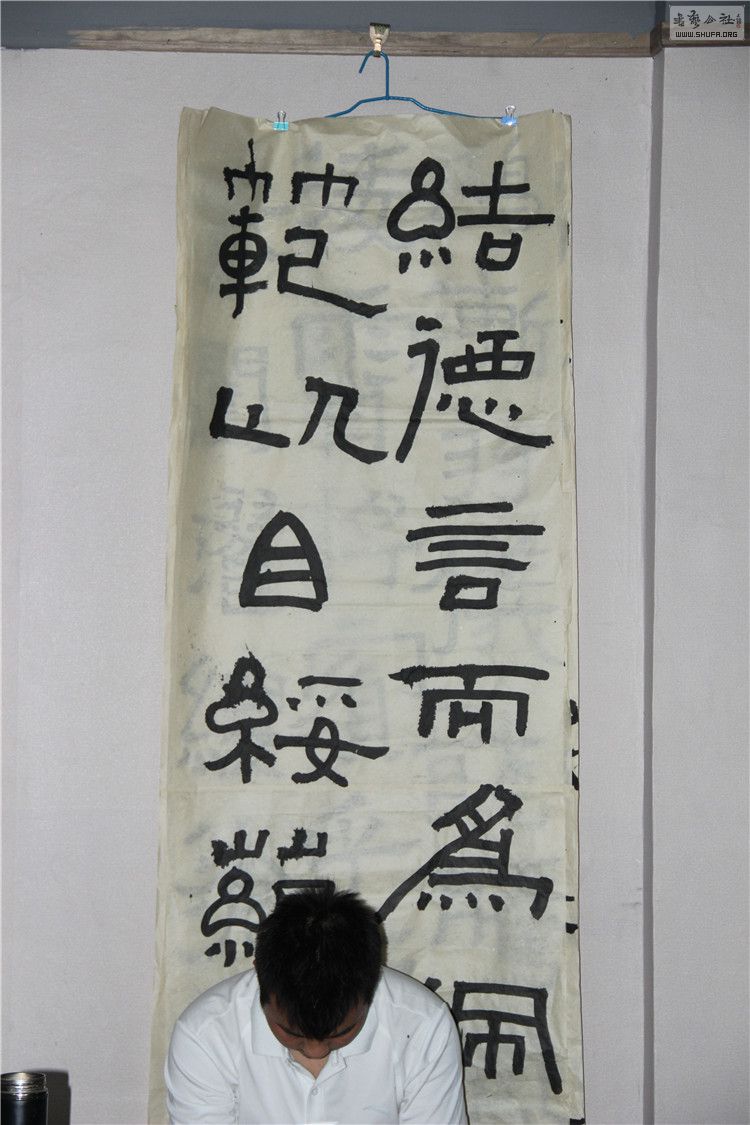 結德言而爲佩
範以自綏
書藝公社
WWW.SHUFA.ORG